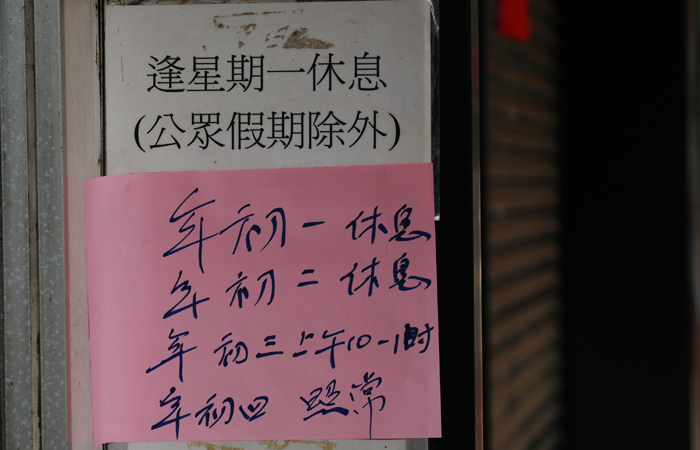 逢星期一休息
(公眾假期除外)
年初一 休息
年初二 休息
年初三上午10-1时
年初四 照常